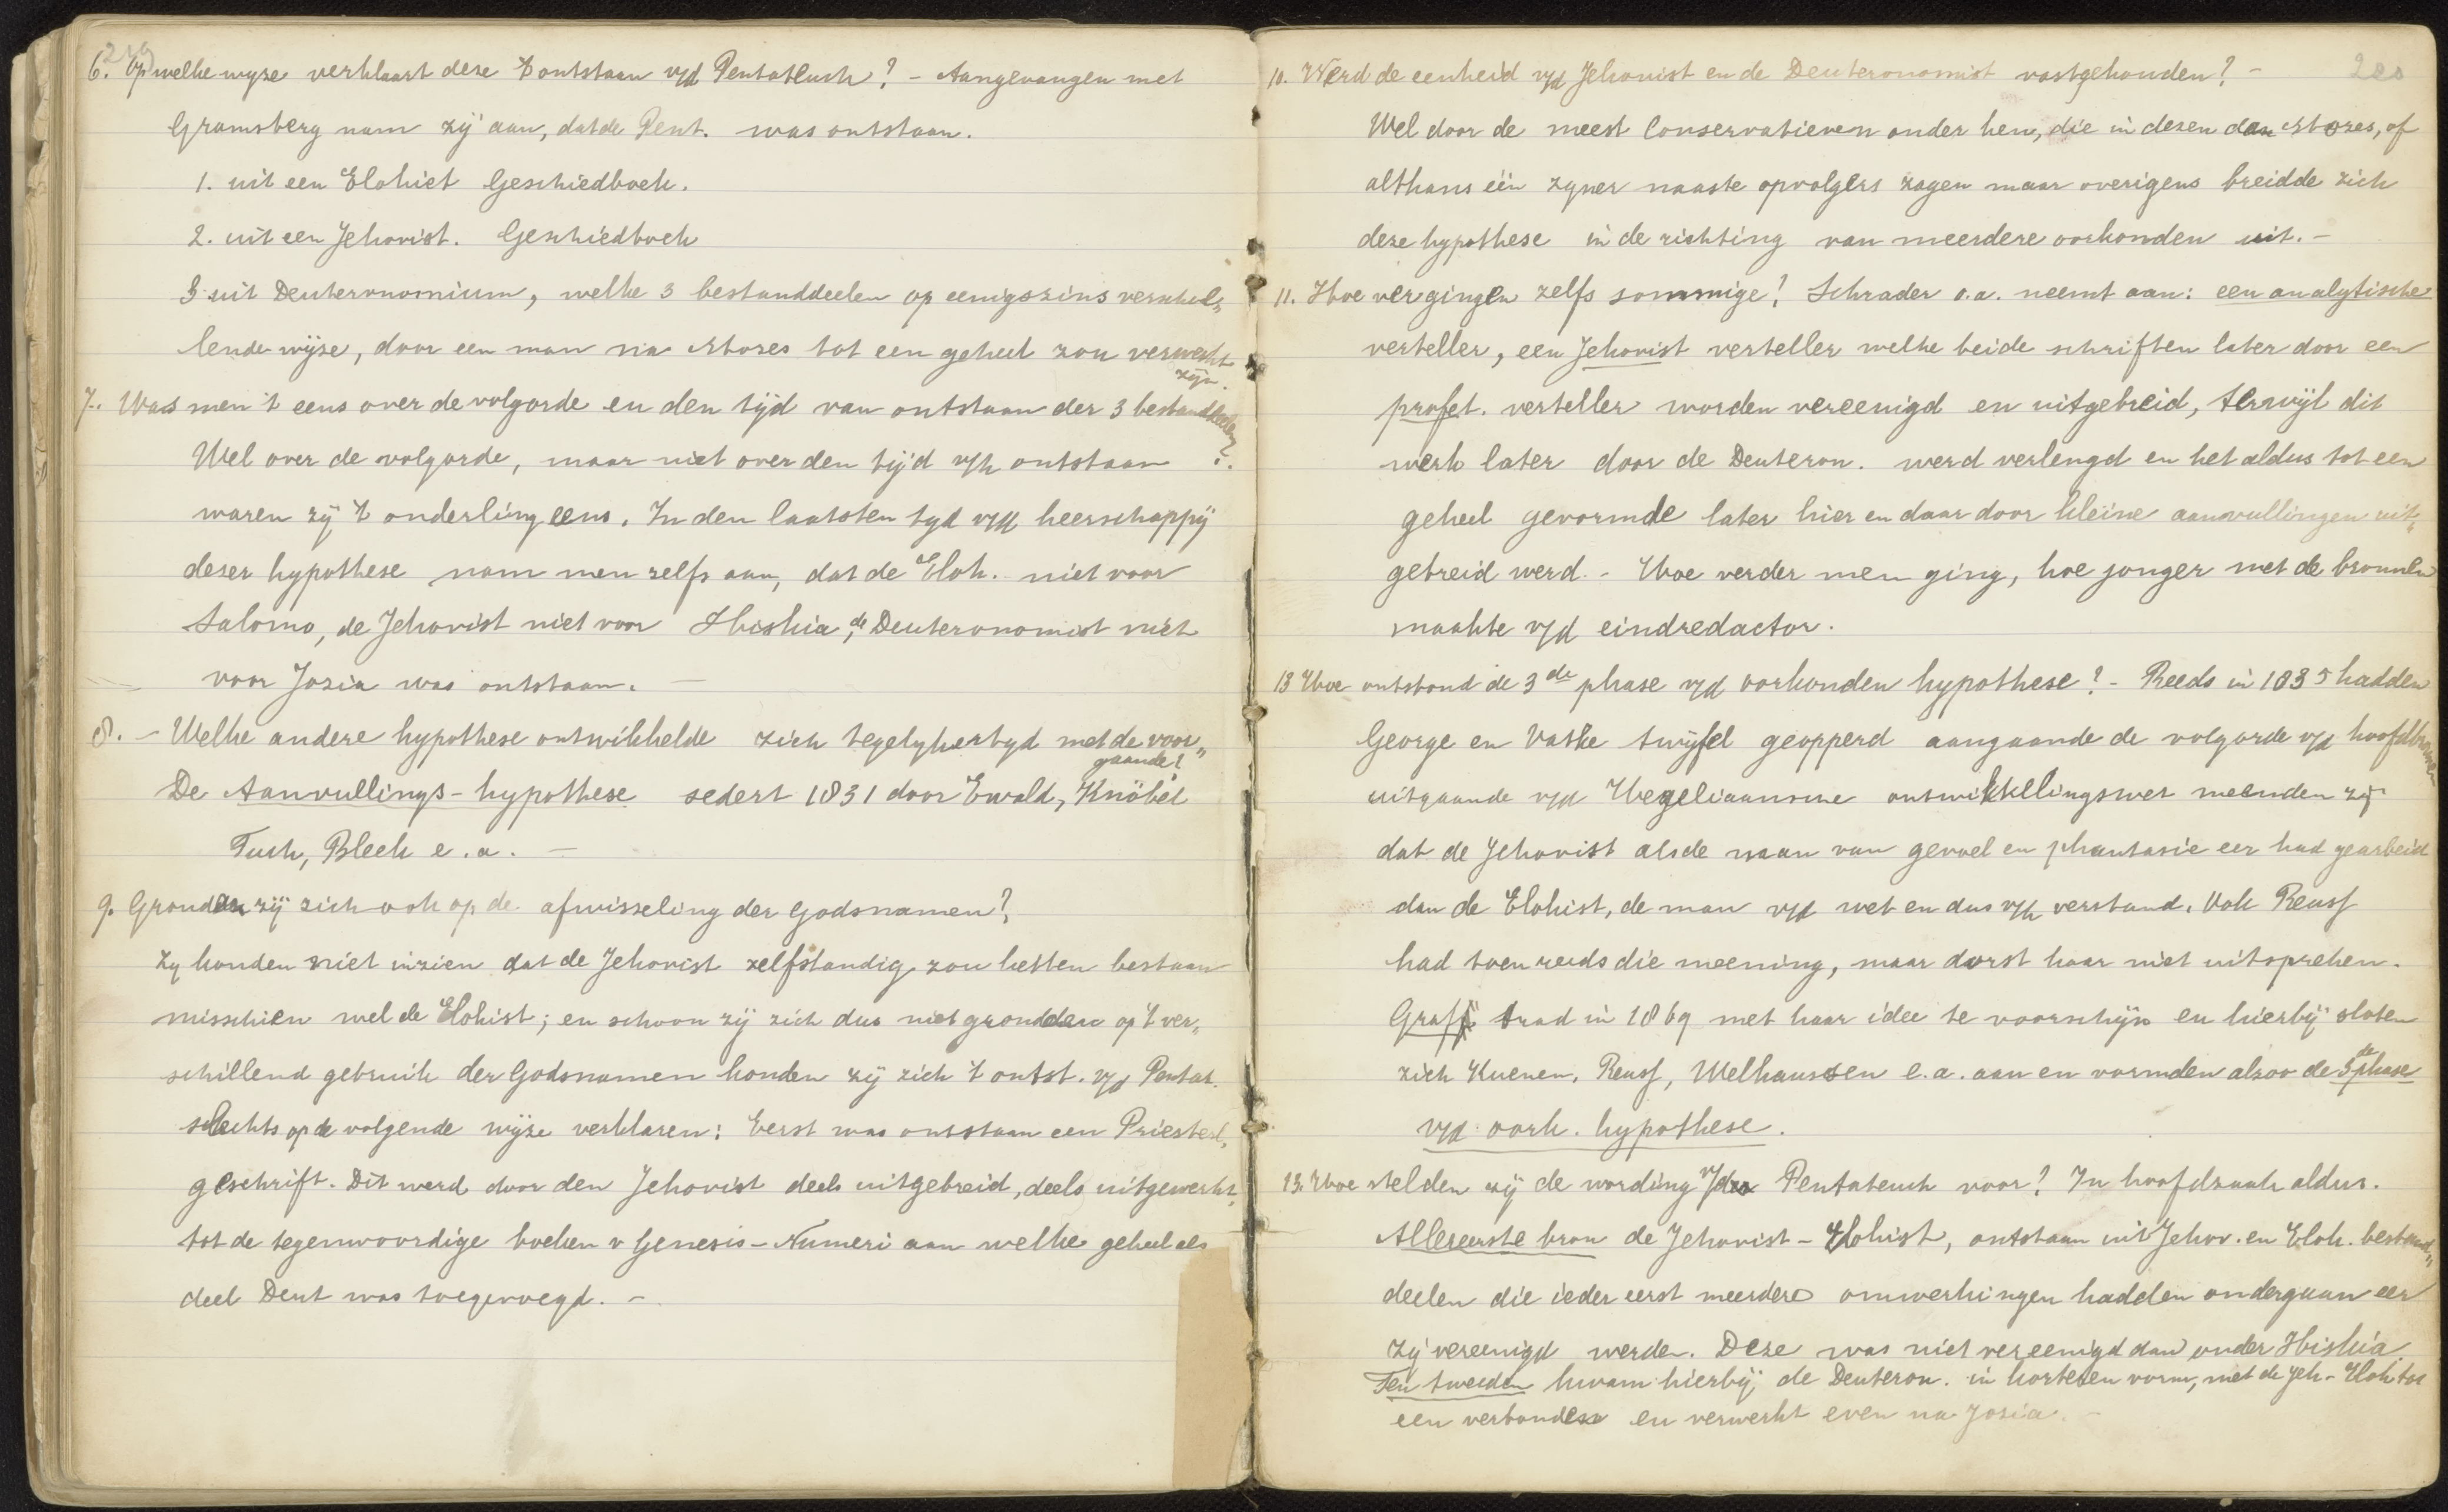 6. Op welke wyze verklaart deze 't ontstaan v/d Pentateuch? - Aangevangen met
Gramsberg nam zij aan, dat de Pent. was ontstaan.
1. uit een Elohist Geschiedboek.
2. uit een Jehovist. Geschiedboek
3 uit Deuteronomium, welke 3 bestanddeelen op eenigszins verschil„
lende wijze, door een man na Mozes tot een geheel zou verwerkt
zijn.
7. Was men 't eens over de volgorde en den tijd van ontstaan der 3 bestanddeelen?
Wel over de volgorde, maar niet over den tijd v/h ontstaan
waren zij 't onderling eens. In den laatsten tyd v/d heerschappij
dezer hypothese nam men zelfs aan, dat de Eloh. niet voor
Salomo, de Jehovist niet voor Hiskia, de Deuteronomist niet
voor Josia was ontstaan. —
8. - Welke andere hypothese ontwikkelde zich tegelykertyd met de voor„
gaande?
De Aanvullings-hypothese sedert 1831 door Ewald, Knöbel
Tuch, Bleek e.a. —
9. Gronden zij zich ook op de afwisseling der Godsnamen?
Zy konden niet inzien dat de Jehovist zelfstandig zou hebben bestaan
misschien wel de Elohist; en schoon zij zich dus niet gronden op 't ver„
schillend gebruik der Godsnamen konden zij zich 't ontst. v/d Pentat.
slechts op de volgende wijze verklaren: Eerst was ontstaan een Priester„
geschrift. Dit werd door den Jehovist deels uitgebreid, deels uitgewerkt,
tot de tegenwoordige boeken v Genesis - Numeri aan welke geheel als
deel Deut was toegevoegd. -
200
10. Werd de eenheid v/d Jehovist en de Deuteronomist vastgehouden? -
Wel door de meest Conservatieven onder hen, die in dezen dan Mozes, of
althans één zyner naaste opvolgers zagen maar overigens breidde zich
deze hypothese in de richting van meerdere oorkonden uit. -
11. Hoe vergingen zelfs sommige? Schrader o.a. neemt aan: een analytische
verteller, een Jehovist verteller welke beide schriften later door een
profet. verteller worden vereenigd en uitgebreid, terwijl dit
werk later door de Deuteron. werd verlengd en het aldus tot een
geheel gevormde later hier en daar door kleine aanvullingen uit„
gebreid werd. - Hoe verder men ging, hoe jonger met de bronnen
maakte v/d eindredactor.
13 Hoe ontstond de 3de phase v/d oorkonden hypothese? - Reeds in 1835 hadden
George en Vatke twijfel geopperd aangaande de volgorde v/d hoofdbronnen
uitgaande v/d Hegeliaansche ontwikkelingswet meenden zij
dat de Jehovist als de man van gevoel en phantasie eer had gearbeid
dan de Elohist, de man v/d wet en dus v/h verstand. Ook Reuss
had toen reeds die meening, maar dorst haar niet uitspreken.
Graff trad in 1869 met haar idee te voorschijn en hierbij sloten
zich Kuenen, Reuss, Welhaussen e.a. aan en vormden alzoo de 3de phase
v/d oork. hypothese.
13. Hoe stelden zij de wording v/d Pentateuch voor? In hoofdzaak aldus.
Allereerste bron de Jehovist - Elohist, ontstaan uit Jehov. en Eloh. bestand„
deelen die ieder eerst meerdere omwerkingen hadden ondergaan eer
zij vereenigd werden. Deze was niet vereenigd dan onder Hiskia
Ten tweeden kwam hierbij de Deuteron. in korteren vorm, met de Jeh - Eloh tot
een verbonden en verwerkt even na Josia. -